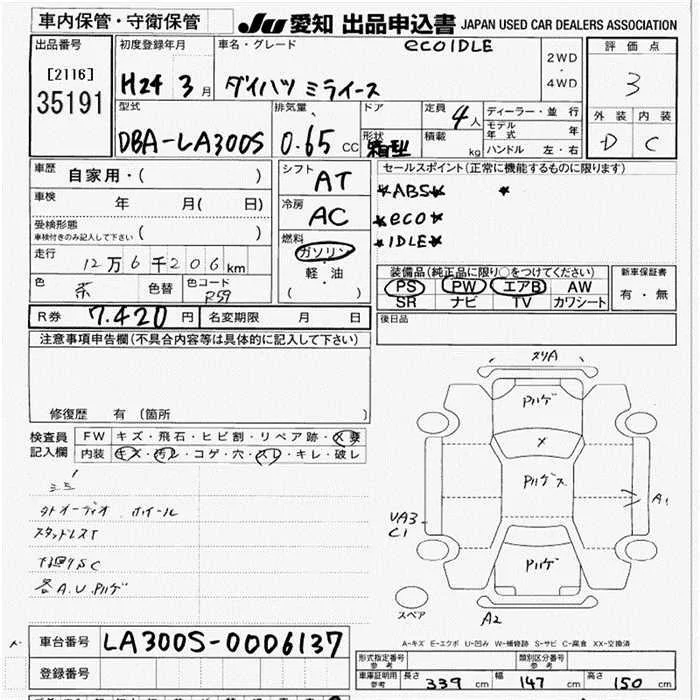 車内保管・守衛保管
JU 愛知 出品申込書 JAPAN USED CAR DEALERS ASSOCIATION
出品番号
[2116]
35191
初度登録年月
H24 3 月
車名・グレード
ecoIDLE
ダイハツ ミライース
2WD
・
4WD
評価点
3
外装 内装
D C
型式
DBA-LA300S
排気量
0.65 CC
ドア
形状
箱型
定員 4 人
積載 kg
ディーラー・並行
モデル年式 年
ハンドル 左・右
車歴 自家用・( )
車検 年 月( 日)
受検形態
車検付きのみ記入して下さい ( )
走行 12万6千206km
色 茶 色替 色コード R59
シフト AT
冷房 AC
燃料
ガソリン
・
軽・油
( )
セールスポイント(正常に機能するものに限ります)
★ABS★ ★
★eco★
★IDLE★
装備品(純正品に限り○をつけてください)
PS PW エアB AW
SR ナビ TV カワシート
新車保証書
有・無
R券 7.420 円 名変期限 月 日
後日品
注意事項申告欄(不具合内容等は具体的に記入して下さい)
修復歴 有 (箇所 )
検査員記入欄
FW キズ・飛石・ヒビ割・リペア跡・X要
内装 キズ・汚レ・コゲ・穴・スレ・キレ・破レ
外オーディオ ホイール
スタッドレスT
下廻りSC
各A.U.Pハゲ
スリA
Pハゲ
×
Pハゲス
Pハゲ
A1
UA3
C1
A2
スペア
A-キズ E-エクボ U-凹み W-補修跡 S-サビ C-腐食 XX-交換済
車台番号 LA300S-0006137
登録番号
形式指定番号 参考
類別区分番号 参考
車庫証明用 参考 長さ 339 cm 幅 147 cm 高さ 150 cm